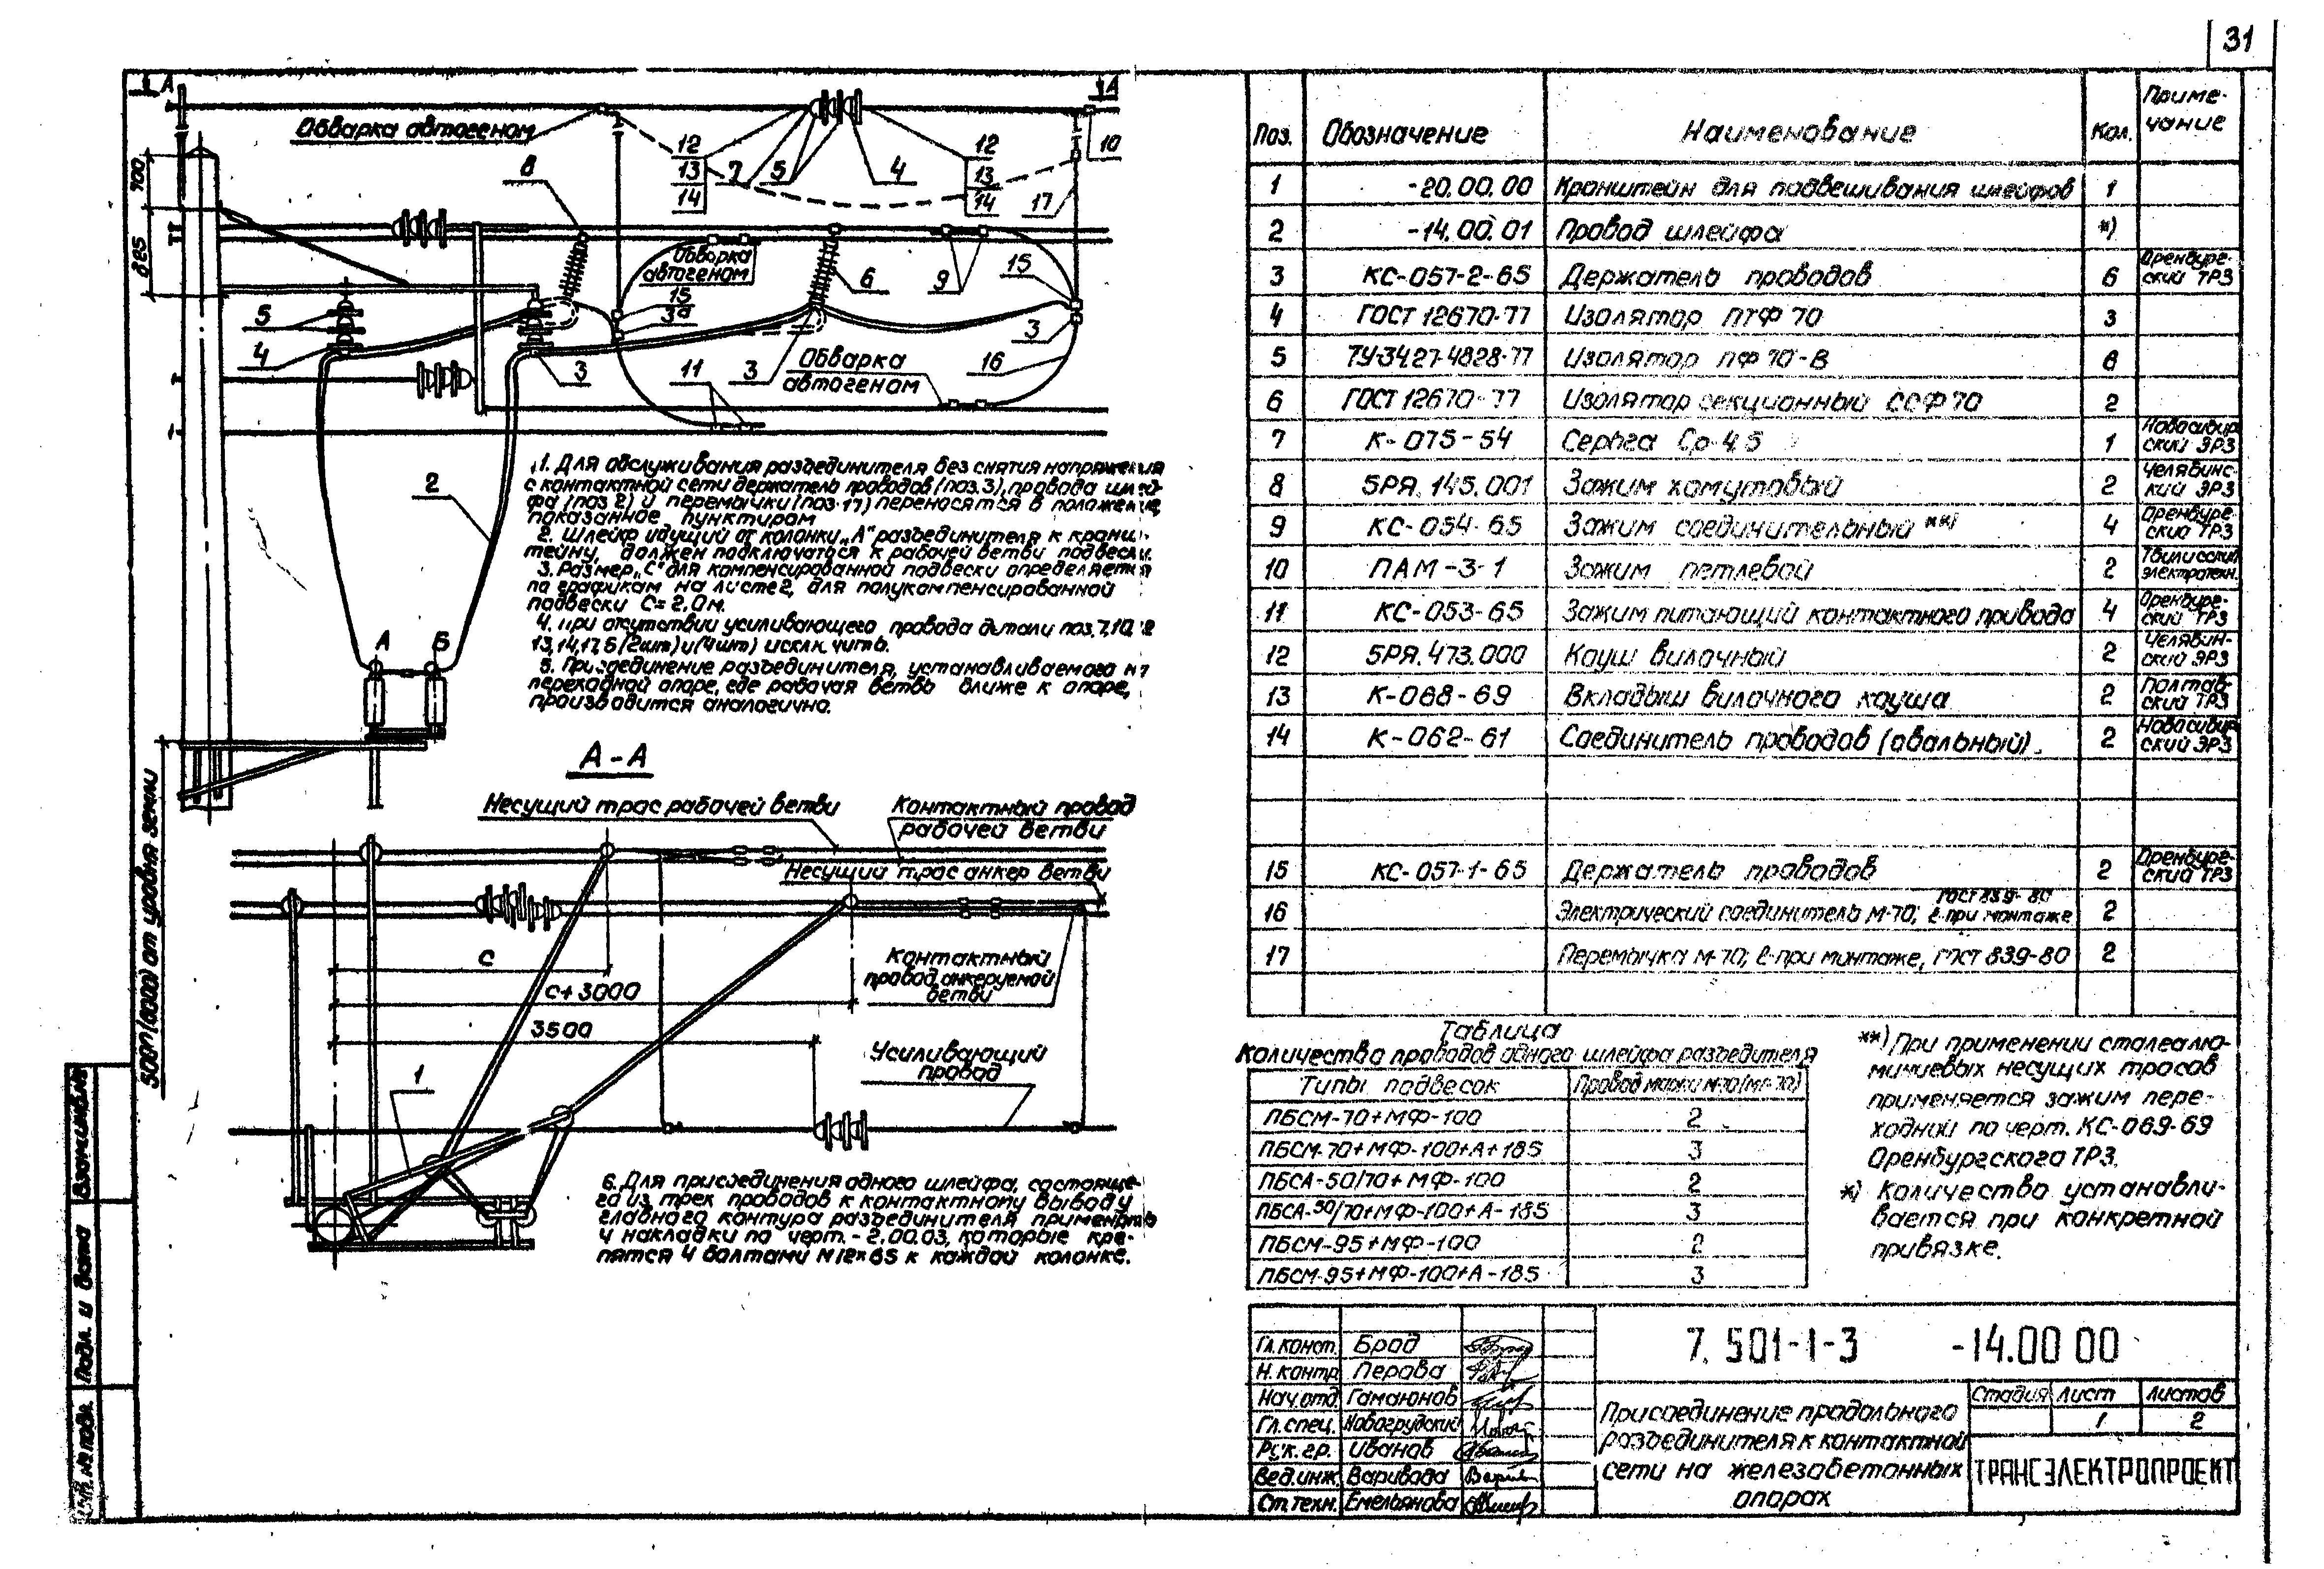 31
А
А
Обварка автогеном
12
13
14
7
5
4
12
13
14
17
10
8
100
865
Обварка
автогеном
6
9
15
15
3а
3
5
4
3
11
3
16
Обварка
автогеном
2
А
Б
500П(600П) от уровня земли
1. Для обслуживания разъединителя без снятия напряжения
с контактной сети держатель проводов (поз.3), провода шлей-
фа (поз 2) и перемычки (поз.17) переносятся в положение,
показанное пунктиром
2. Шлейф идущий от колонки „А" разъединителя к кронш-
тейну, должен подключаться к рабочей ветви подвески.
3. Размер „С" для компенсированной подвески определяется
по графикам на листе 2, для полукомпенсированной
подвески С=2,0м.
4. При отсутствии усиливающего провода детали поз. 7,10,12
13,14,17,5 (2шт) и (4шт) исключить.
5. Присоединение разъединителя, устанавливаемого на
переходной опоре, где рабочая ветвь ближе к опоре,
производится аналогично.
А-А
Несущий трос рабочей ветви
Контактный провод
рабочей ветви
Несущий трос анкер ветви
С
С+3000
3500
Контактный
провод анкеруемой
ветви
Усиливающий
провод
1
6. Для присоединения одного шлейфа, состояще-
го из трех проводов к контактному выводу
главного контура разъединителя применять
4 накладки по черт. -2.00.03, которые кре-
пятся 4 болтами М12×65 к каждой колонке.
Поз. Обозначение Наименование Кол. Приме-
чание
1 -20.00.00 Кронштейн для подвешивания шлейфов 1
2 -14.00.01 Провод шлейфа *)
3 КС-057-2-65 Держатель проводов 6 Оренбург-
ский ТРЗ
4 ГОСТ 12670-77 Изолятор ПТФ 70 3
5 ТУ34.27-4828-77 Изолятор ПФ 70-В 6
6 ГОСТ 12670-77 Изолятор секционный ССФ 70 2
7 К-075-54 Серьга Ср-4,5 1 Новосибир
ский ЭРЗ
8 5РЯ.145.001 Зажим хомутовый 2 Челябинс-
кий ЭРЗ
9 КС-054-65 Зажим соединительный **) 4 Оренбург-
ский ТРЗ
10 ПАМ-3-1 Зажим петлевой 2 Тбилисский
электротехн.
11 КС-053-65 Зажим питающий контактного привода 4 Оренбург-
ский ТРЗ
12 5РЯ.473.000 Коуш вилочный 2 Челябин-
ский ЭРЗ
13 К-068-69 Вкладыш вилочного коуша 2 Полтав-
ский ТРЗ
14 К-062-61 Соединитель проводов (овальный). 2 Новосибир
ский ЭРЗ
15 КС-057-1-65 Держатель проводов 2 Оренбург-
ский ТРЗ
16 Электрический соединитель М-70; ℓ-при монтаже ГОСТ 839-80 2
17 Перемычка М-70; ℓ-при монтаже, ГОСТ 839-80 2
Таблица
количества проводов одного шлейфа разъедителя
Типы подвесок Провод марки М-70 (МГ-70)
ПБСМ-70+МФ-100 2
ПБСМ-70+МФ-100+А+185 3
ПБСА-50/70+МФ-100 2
ПБСА-50/70+МФ-100+А-185 3
ПБСМ-95+МФ-100 2
ПБСМ-95+МФ-100+А-185 3
**) При применении сталеалю-
миниевых несущих тросов
применяется зажим пере-
ходной по черт. КС-069-69
Оренбургского ТРЗ.
*) Количество устанавли-
вается при конкретной
привязке.
Гл.конст. Брод
Н.контр Перова
Нач.отд Гамаюнов
Гл.спец. Новогрудский
Рук.гр. Иванов
Вед.инж. Варивода
Ст.техн. Емельянова
7. 501-1-3 -14.00 00
Присоединение продольного
разъединителя к контактной
сети на железобетонных
опорах
Стадия Лист Листов
1 2
ТРАНСЭЛЕКТРОПРОЕКТ
Взам.инв.№
Подп. и дата
Инв.№ подл.